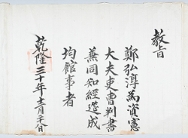 教旨
鄭弘淳為資憲
大夫吏曹判書
兼同知經筵成
均館事者
乾隆三年十二月 日